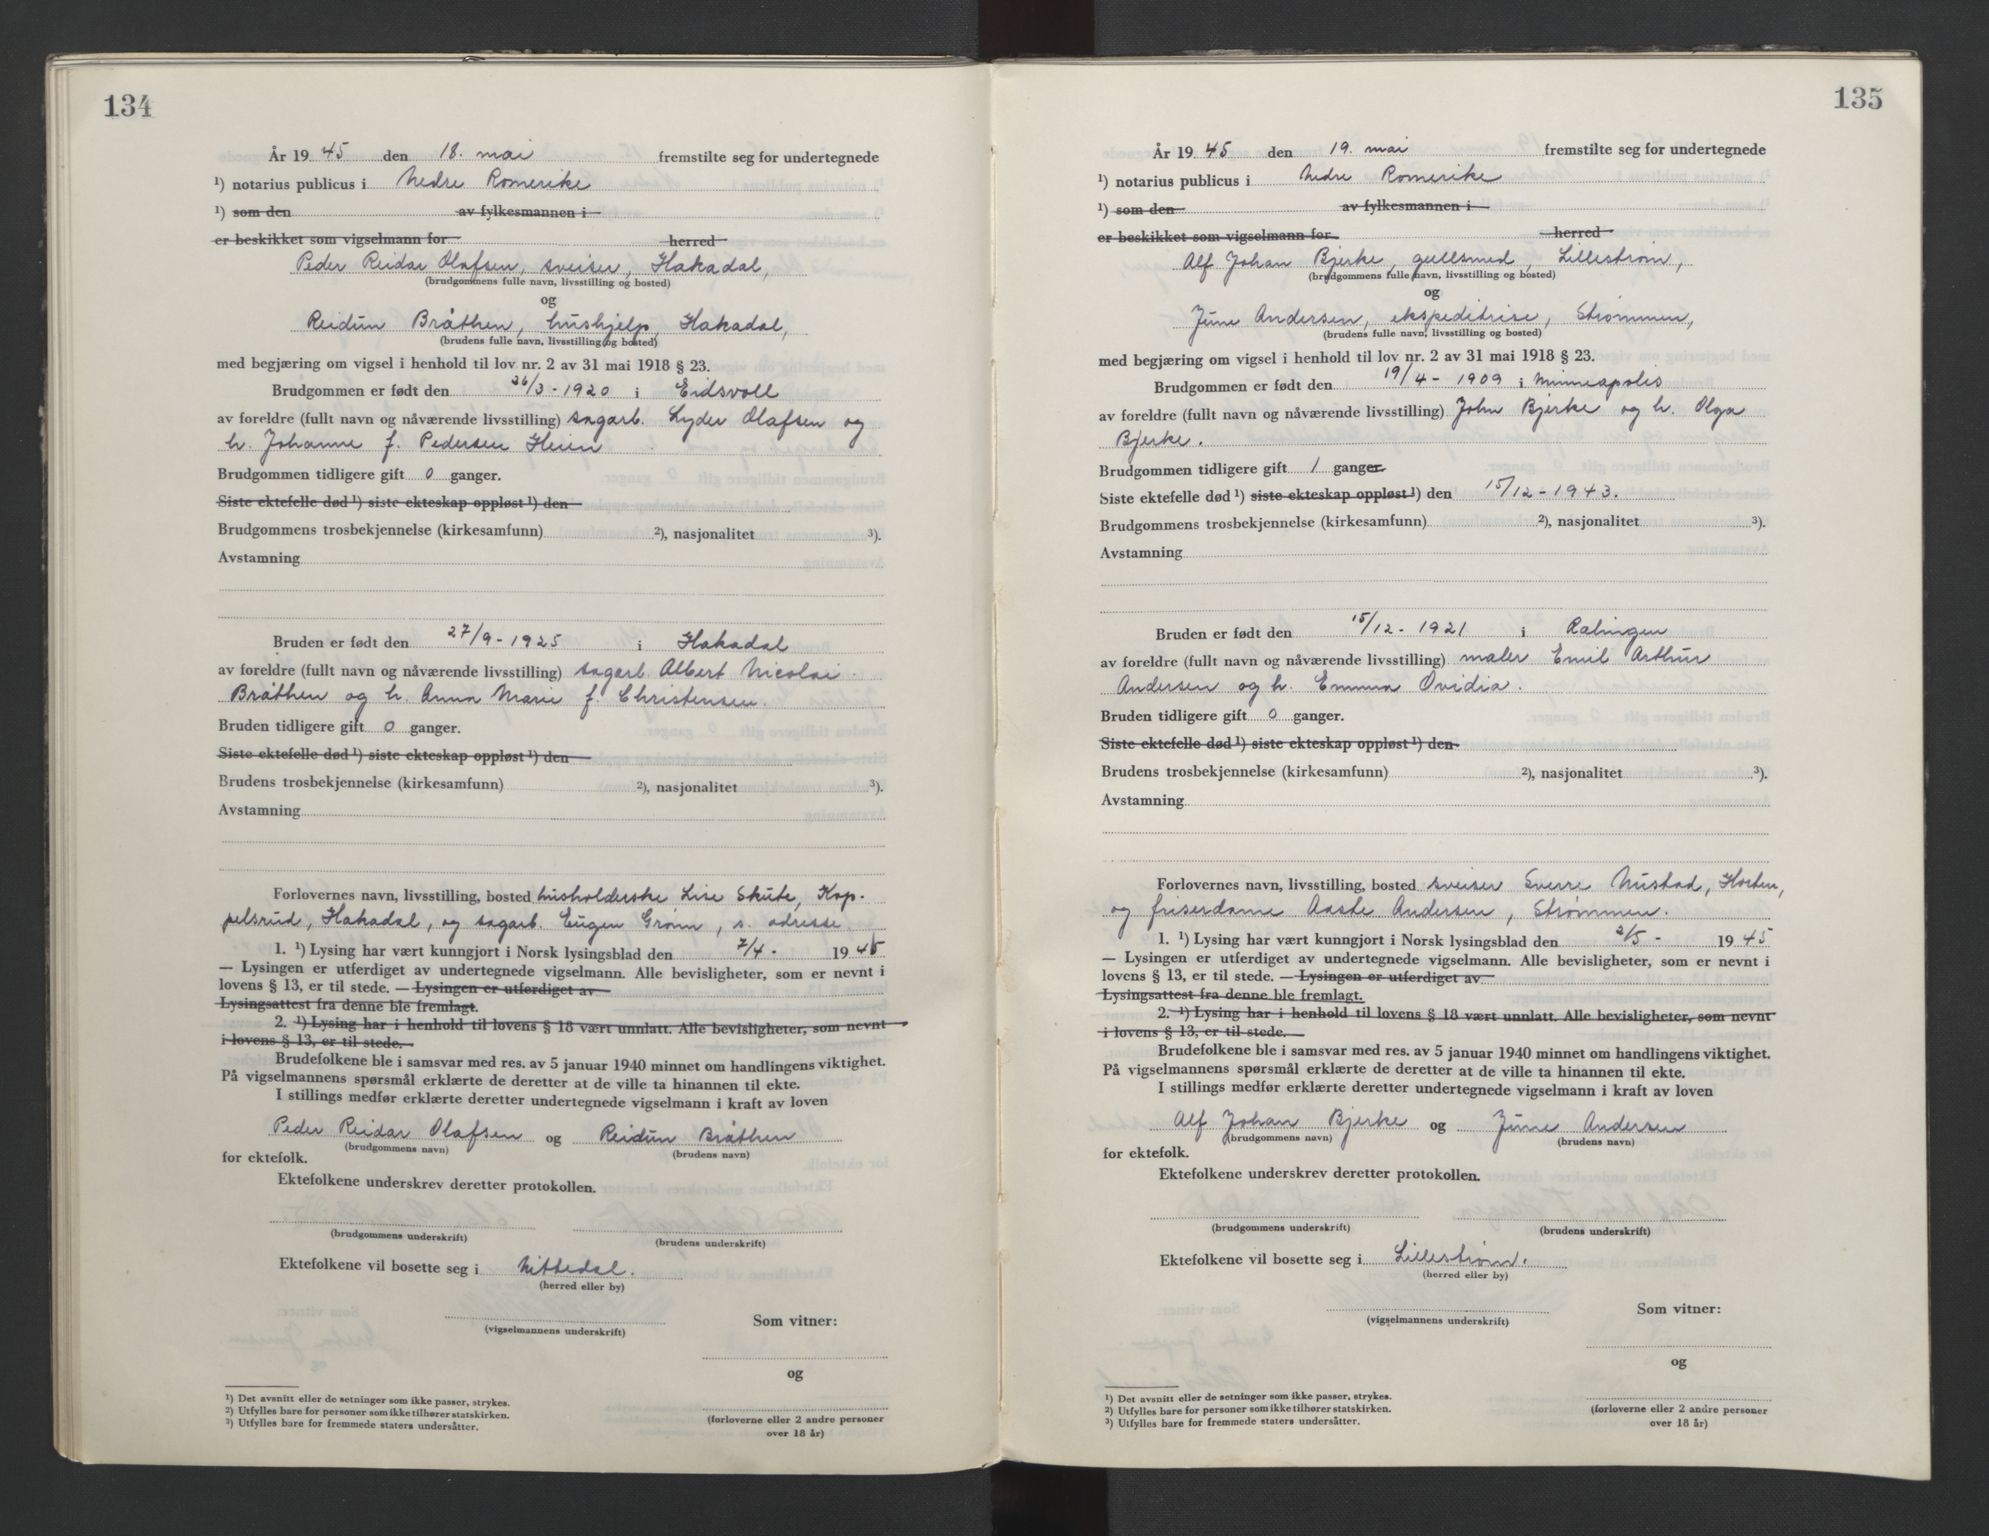 134
År 19 45 den 18. mai fremstilte seg for undertegnede
¹) notarius publicus i Nedre Romerike
¹) som den av fylkesmannen i
er beskikket som vigselmann for herred
Peder Reidar Olafsen, sveiser, Hakadal,
(brudgommens fulle navn, livsstilling og bosted)
og
Reidun Bråthen, hushjelp, Hakadal,
(brudens fulle navn, livsstilling og bosted)
med begjæring om vigsel i henhold til lov nr. 2 av 31 mai 1918 § 23.
Brudgommen er født den 26/3 - 1920 i Eidsvoll
av foreldre (fullt navn og nåværende livsstilling) sagarb. Lyder Olafsen og
h. Johanne f. Pedersen Heim
Brudgommen tidligere gift 0 ganger.
Siste ektefelle død ¹) siste ekteskap oppløst ¹) den
Brudgommens trosbekjennelse (kirkesamfunn) ²), nasjonalitet ³).
Avstamning
Bruden er født den 27/9 - 1925 i Hakadal
av foreldre (fullt navn og nåværende livsstilling) sagarb. Albert Nicolai
Bråthen og h. Anna Marie f. Christensen.
Bruden tidligere gift 0 ganger.
Siste ektefelle død ¹) siste ekteskap oppløst ¹) den
Brudens trosbekjennelse (kirkesamfunn) ²), nasjonalitet ³).
Avstamning
Forlovernes navn, livsstilling, bosted husholderske Lise Skute, Kop-
pelsrud, Hakadal, og sagarb. Eugen Grønn, s. adresse.
1. ¹) Lysing har vært kunngjort i Norsk lysingsblad den 7/4 - 19 45
— Lysingen er utferdiget av undertegnede vigselmann. Alle bevisligheter, som er nevnt i
lovens § 13, er til stede. — Lysingen er utferdiget av
Lysingsattest fra denne ble fremlagt.
2. ¹) Lysing har i henhold til lovens § 18 vært unnlatt. Alle bevisligheter, som nevnt
i lovens § 13, er til stede. —
Brudefolkene ble i samsvar med res. av 5 januar 1940 minnet om handlingens viktighet.
På vigselmannens spørsmål erklærte de deretter at de ville ta hinannen til ekte.
I stillings medfør erklærte deretter undertegnede vigselmann i kraft av loven
Peder Reidar Olafsen og Reidun Bråthen
(brudgommens navn) (brudens navn)
for ektefolk.
Ektefolkene underskrev deretter protokollen.
(brudgommens underskrift) (brudens underskrift)
Ektefolkene vil bosette seg i Nittedal.
(herred eller by)
Som vitner:
(vigselmannens underskrift)
og
¹) Det avsnitt eller de setninger som ikke passer, strykes.
²) Utfylles bare for personer som ikke tilhører statskirken.
³) Utfylles bare for fremmede staters undersåtter.
(forloverne eller 2 andre personer
over 18 år)
135
År 19 45 den 19. mai fremstilte seg for undertegnede
¹) notarius publicus i Nedre Romerike
¹) som den av fylkesmannen i
er beskikket som vigselmann for herred
Alf Johan Bjerke, gullsmed, Lillestrøm,
(brudgommens fulle navn, livsstilling og bosted)
og
June Andersen, ekspeditrise, Strømmen,
(brudens fulle navn, livsstilling og bosted)
med begjæring om vigsel i henhold til lov nr. 2 av 31 mai 1918 § 23.
Brudgommen er født den 19/4 - 1909 i Minneapolis
av foreldre (fullt navn og nåværende livsstilling) John Bjerke og h. Olga
Bjerke.
Brudgommen tidligere gift 1 ganger.
Siste ektefelle død ¹) siste ekteskap oppløst ¹) den 15/12 - 1943.
Brudgommens trosbekjennelse (kirkesamfunn) ²), nasjonalitet ³).
Avstamning
Bruden er født den 15/12 - 1921 i Rælingen
av foreldre (fullt navn og nåværende livsstilling) maler Emil Arthur
Andersen og h. Emma Ovidia.
Bruden tidligere gift 0 ganger.
Siste ektefelle død ¹) siste ekteskap oppløst ¹) den
Brudens trosbekjennelse (kirkesamfunn) ²), nasjonalitet ³).
Avstamning
Forlovernes navn, livsstilling, bosted sveiser Sverre Nustad, Horten,
og friserdame Aaste Andersen, Strømmen.
1. ¹) Lysing har vært kunngjort i Norsk lysingsblad den 2/5 - 19 45
— Lysingen er utferdiget av undertegnede vigselmann. Alle bevisligheter, som er nevnt i
lovens § 13, er til stede. — Lysingen er utferdiget av
Lysingsattest fra denne ble fremlagt.
2. ¹) Lysing har i henhold til lovens § 18 vært unnlatt. Alle bevisligheter, som nevnt
i lovens § 13, er til stede. —
Brudefolkene ble i samsvar med res. av 5 januar 1940 minnet om handlingens viktighet.
På vigselmannens spørsmål erklærte de deretter at de ville ta hinannen til ekte.
I stillings medfør erklærte deretter undertegnede vigselmann i kraft av loven
Alf Johan Bjerke og June Andersen
(brudgommens navn) (brudens navn)
for ektefolk.
Ektefolkene underskrev deretter protokollen.
(brudgommens underskrift) (brudens underskrift)
Ektefolkene vil bosette seg i Lillestrøm.
(herred eller by)
Som vitner:
(vigselmannens underskrift)
og
¹) Det avsnitt eller de setninger som ikke passer, strykes.
²) Utfylles bare for personer som ikke tilhører statskirken.
³) Utfylles bare for fremmede staters undersåtter.
(forloverne eller 2 andre personer
over 18 år)